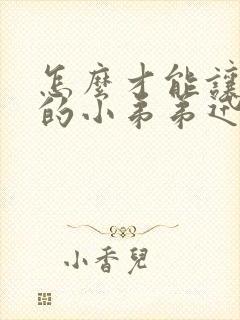 怎麼才能讓
的小弟弟
小香兒